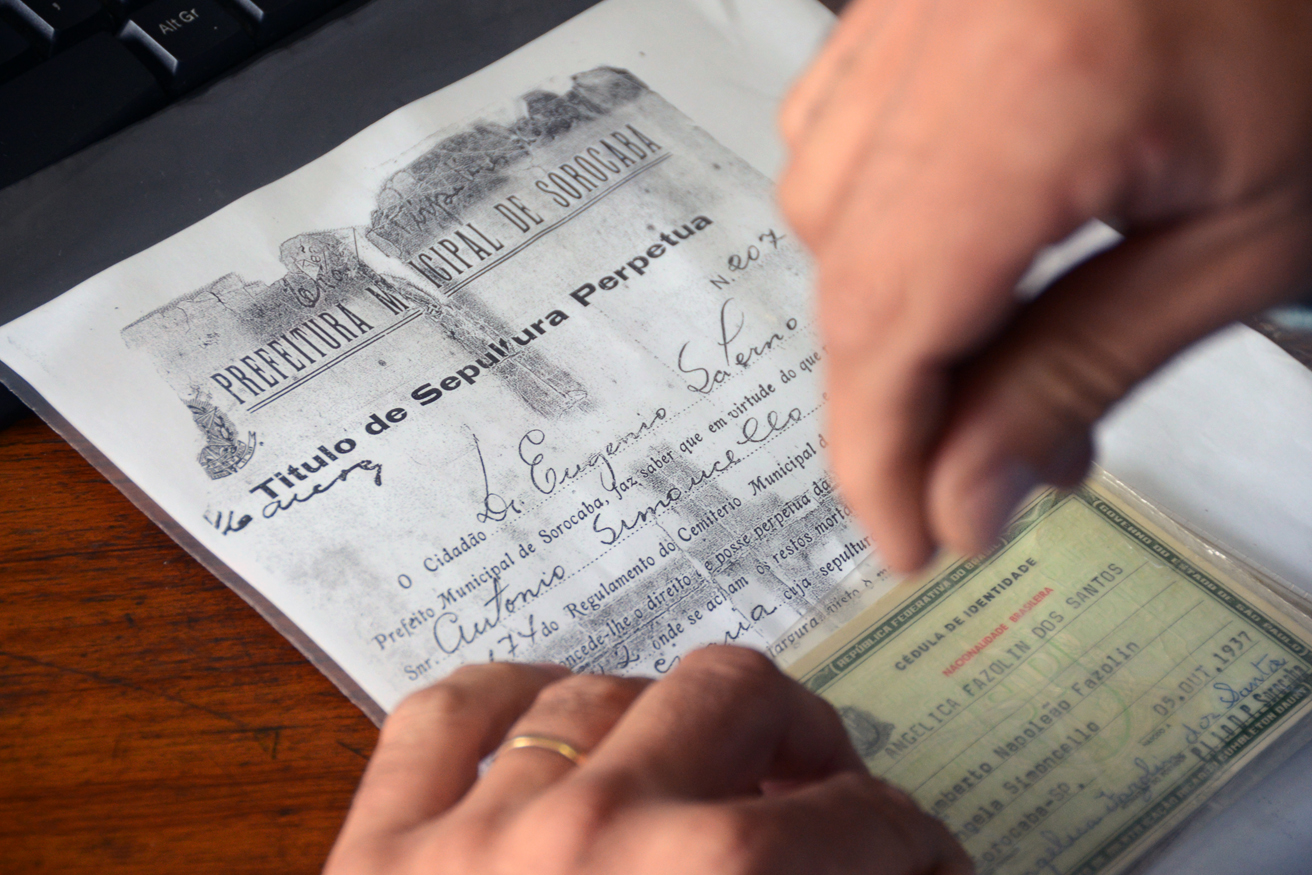 Alt Gr
PREFEITURA MUNICIPAL DE SOROCABA
Titulo de Sepultura Perpetua
N. 207
O Cidadão Dr Eugenio Salerno
Prefeito Municipal de Sorocaba, faz saber que em virtude do que
Snr. Antonio Simoncello
174 do Regulamento do Cemiterio Municipal d
oncede-lhe o direito e posse perpetua da
22 onde se acham os restos morta
cuja sepultur
largura
REPÚBLICA FEDERATIVA DO BRASIL
GOVERNO DO ESTADO DE SÃO PAULO
CÉDULA DE IDENTIDADE
NACIONALIDADE BRASILEIRA
ANGELICA FAZOLIN DOS SANTOS
mberto Napoleão Fazolin
ngela Simoncello
orocaba-SP.
05.OUT.1937
dos Santos